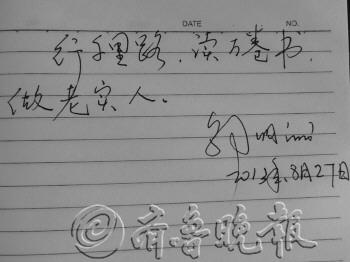 DATE NO.
行千里路、读万卷书、
做老实人。
郭明义
2013年8月27日
@齐鲁晚报